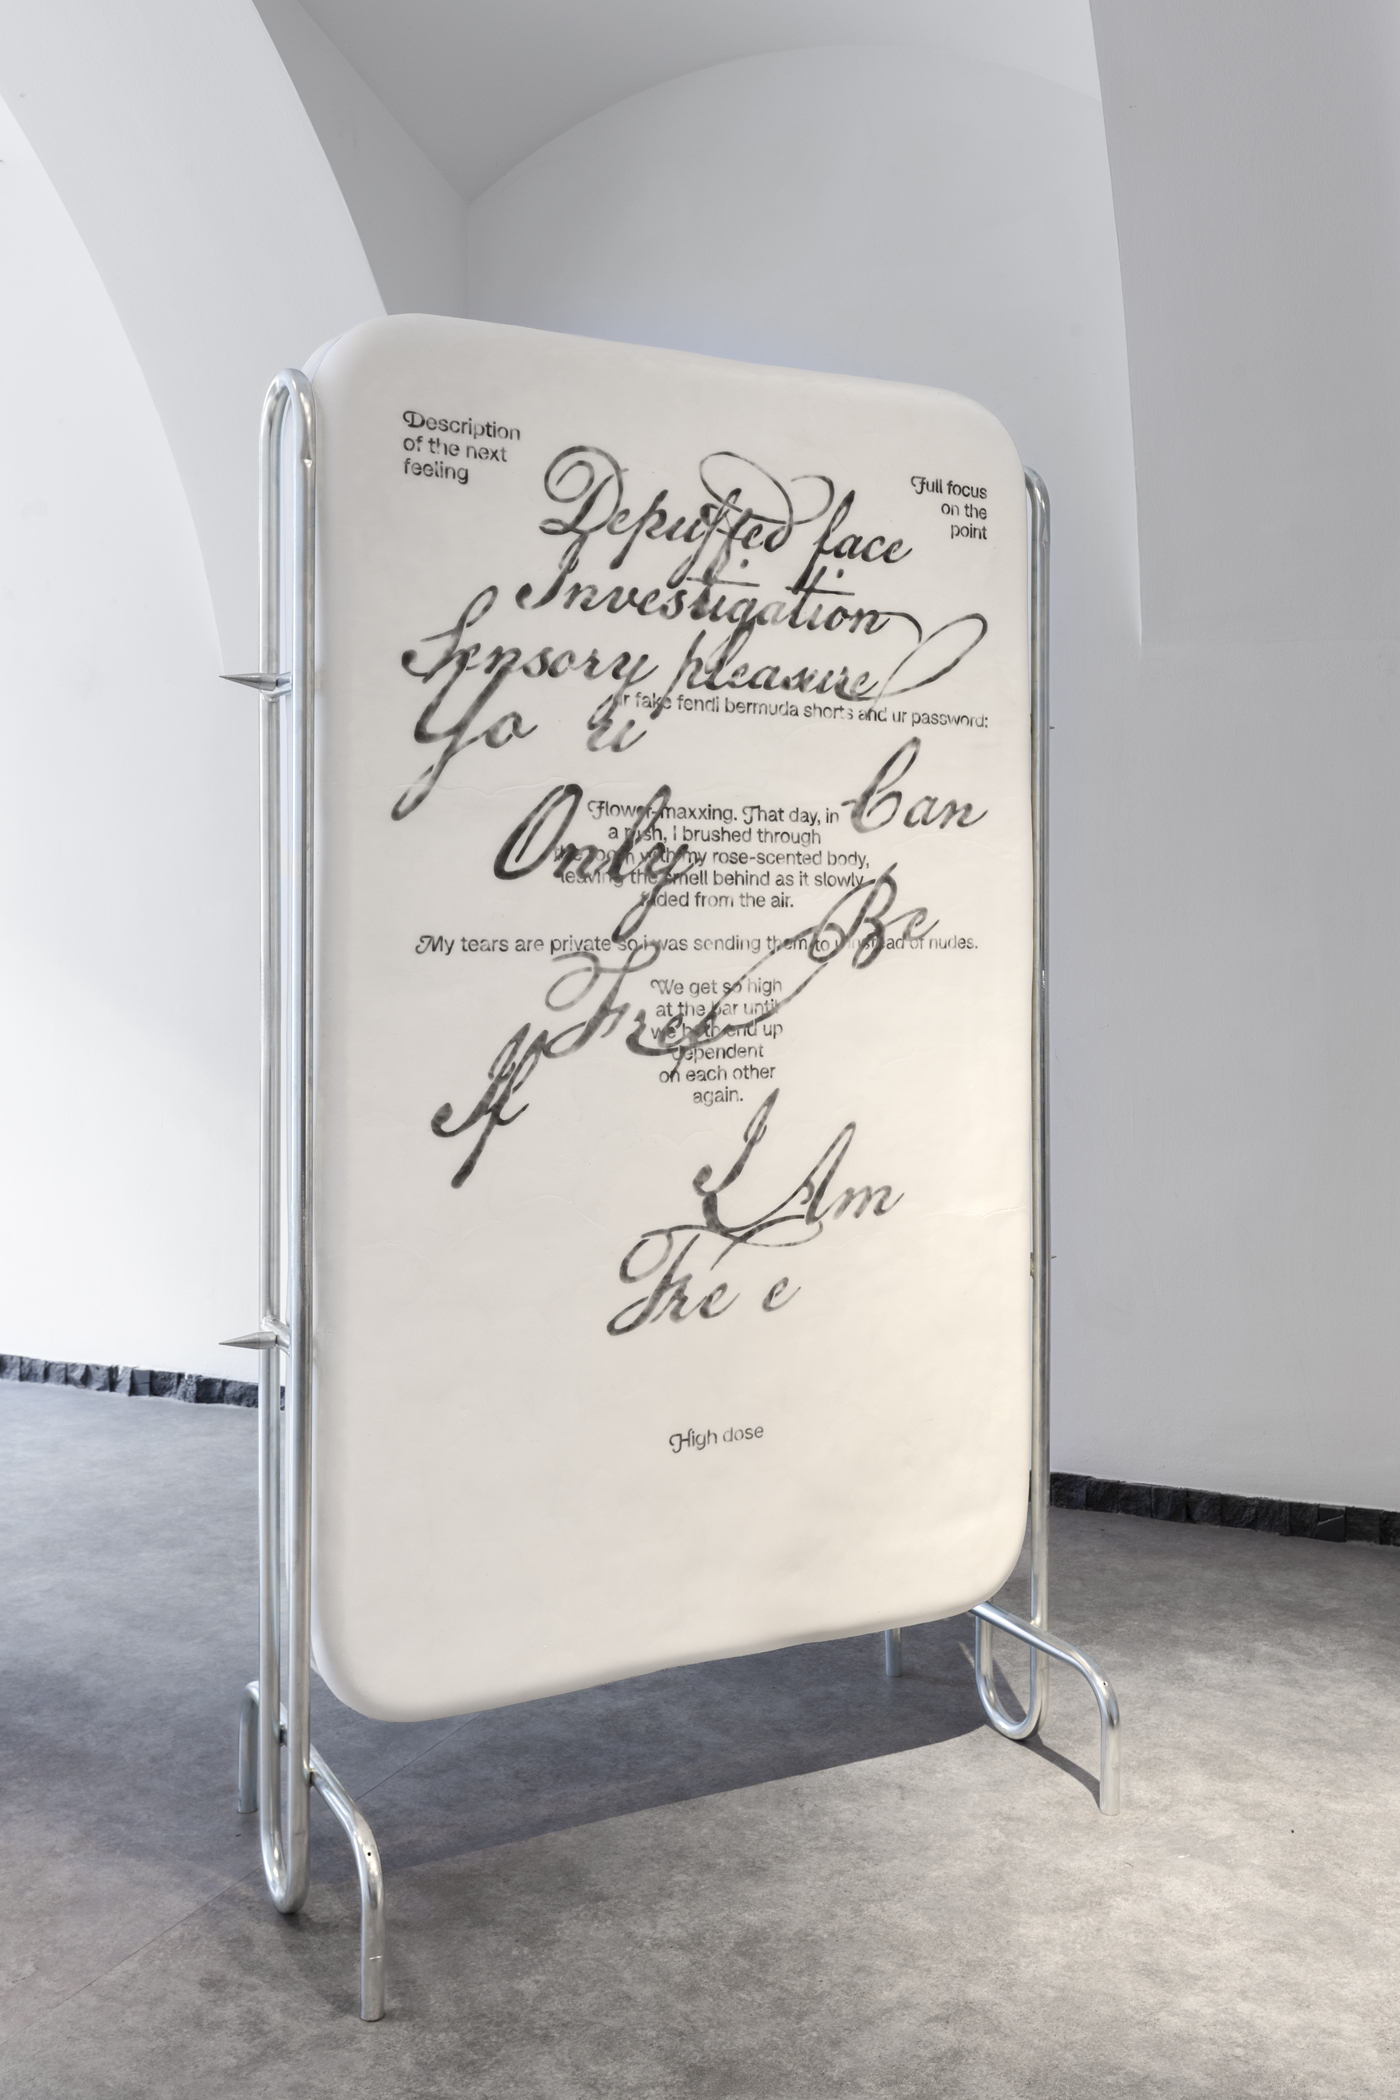 Description
of the next
feeling
Full focus
on the
point
Depuffed face
Investigation
Sensory pleasure
ur fake fendi bermuda shorts and ur password:
Yo u
Can
Only
Flower-maxxing. That day, in
a rush, I brushed through
the room with my rose-scented body,
leaving the smell behind as it slowly
faded from the air.
Be
My tears are private so i was sending them to u instead of nudes.
Free
We get so high
at the bar until
we both end up
dependent
on each other
again.
If
I Am
Fre e
High dose